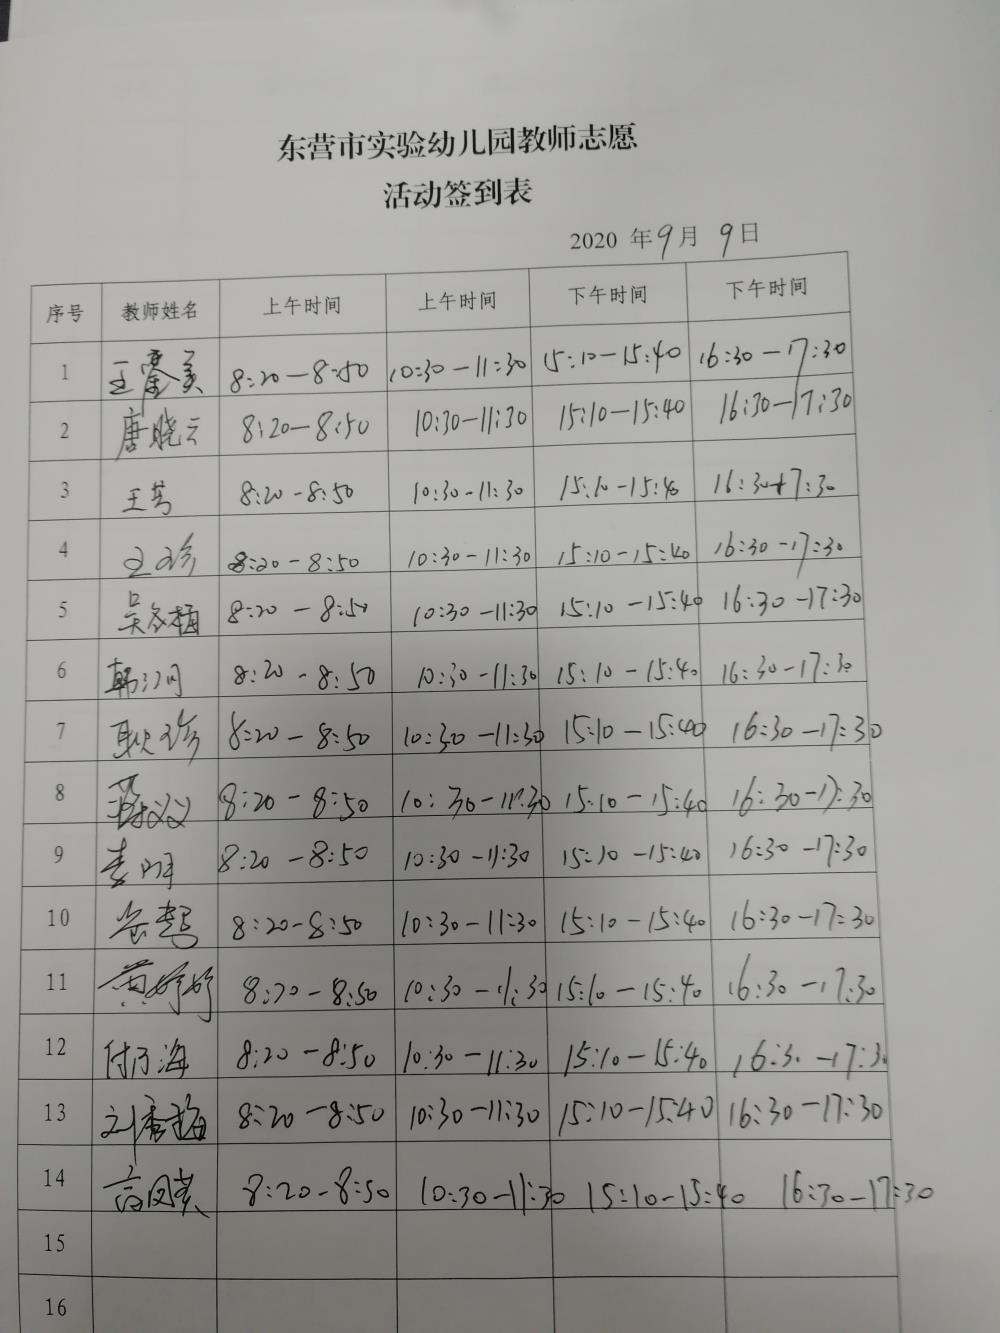 东营市实验幼儿园教师志愿
活动签到表
2020 年9月 9日
序号 教师姓名 上午时间 上午时间 下午时间 下午时间
1 8:20-8:50 10:30-11:30 15:10-15:40 16:30-17:30
2 唐晓云 8:20-8:50 10:30-11:30 15:10-15:40 16:30-17:30
3 8:20-8:50 10:30-11:30 15:10-15:40 16:30-17:30
4 王珍 8:20-8:50 10:30-11:30 15:10-15:40 16:30-17:30
5 吴冬梅 8:20-8:50 10:30-11:30 15:10-15:40 16:30-17:30
6 8:20-8:50 10:30-11:30 15:10-15:40 16:30-17:30
7 耿珍 8:20-8:50 10:30-11:30 15:10-15:40 16:30-17:30
8 8:20-8:50 10:30-11:30 15:10-15:40 16:30-17:30
9 8:20-8:50 10:30-11:30 15:10-15:40 16:30-17:30
10 8:20-8:50 10:30-11:30 15:10-15:40 16:30-17:30
11 黄婷婷 8:20-8:50 10:30-11:30 15:10-15:40 16:30-17:30
12 付乃海 8:20-8:50 10:30-11:30 15:10-15:40 16:30-17:30
13 8:20-8:50 10:30-11:30 15:10-15:40 16:30-17:30
14 高凤美 8:20-8:50 10:30-11:30 15:10-15:40 16:30-17:30
15
16